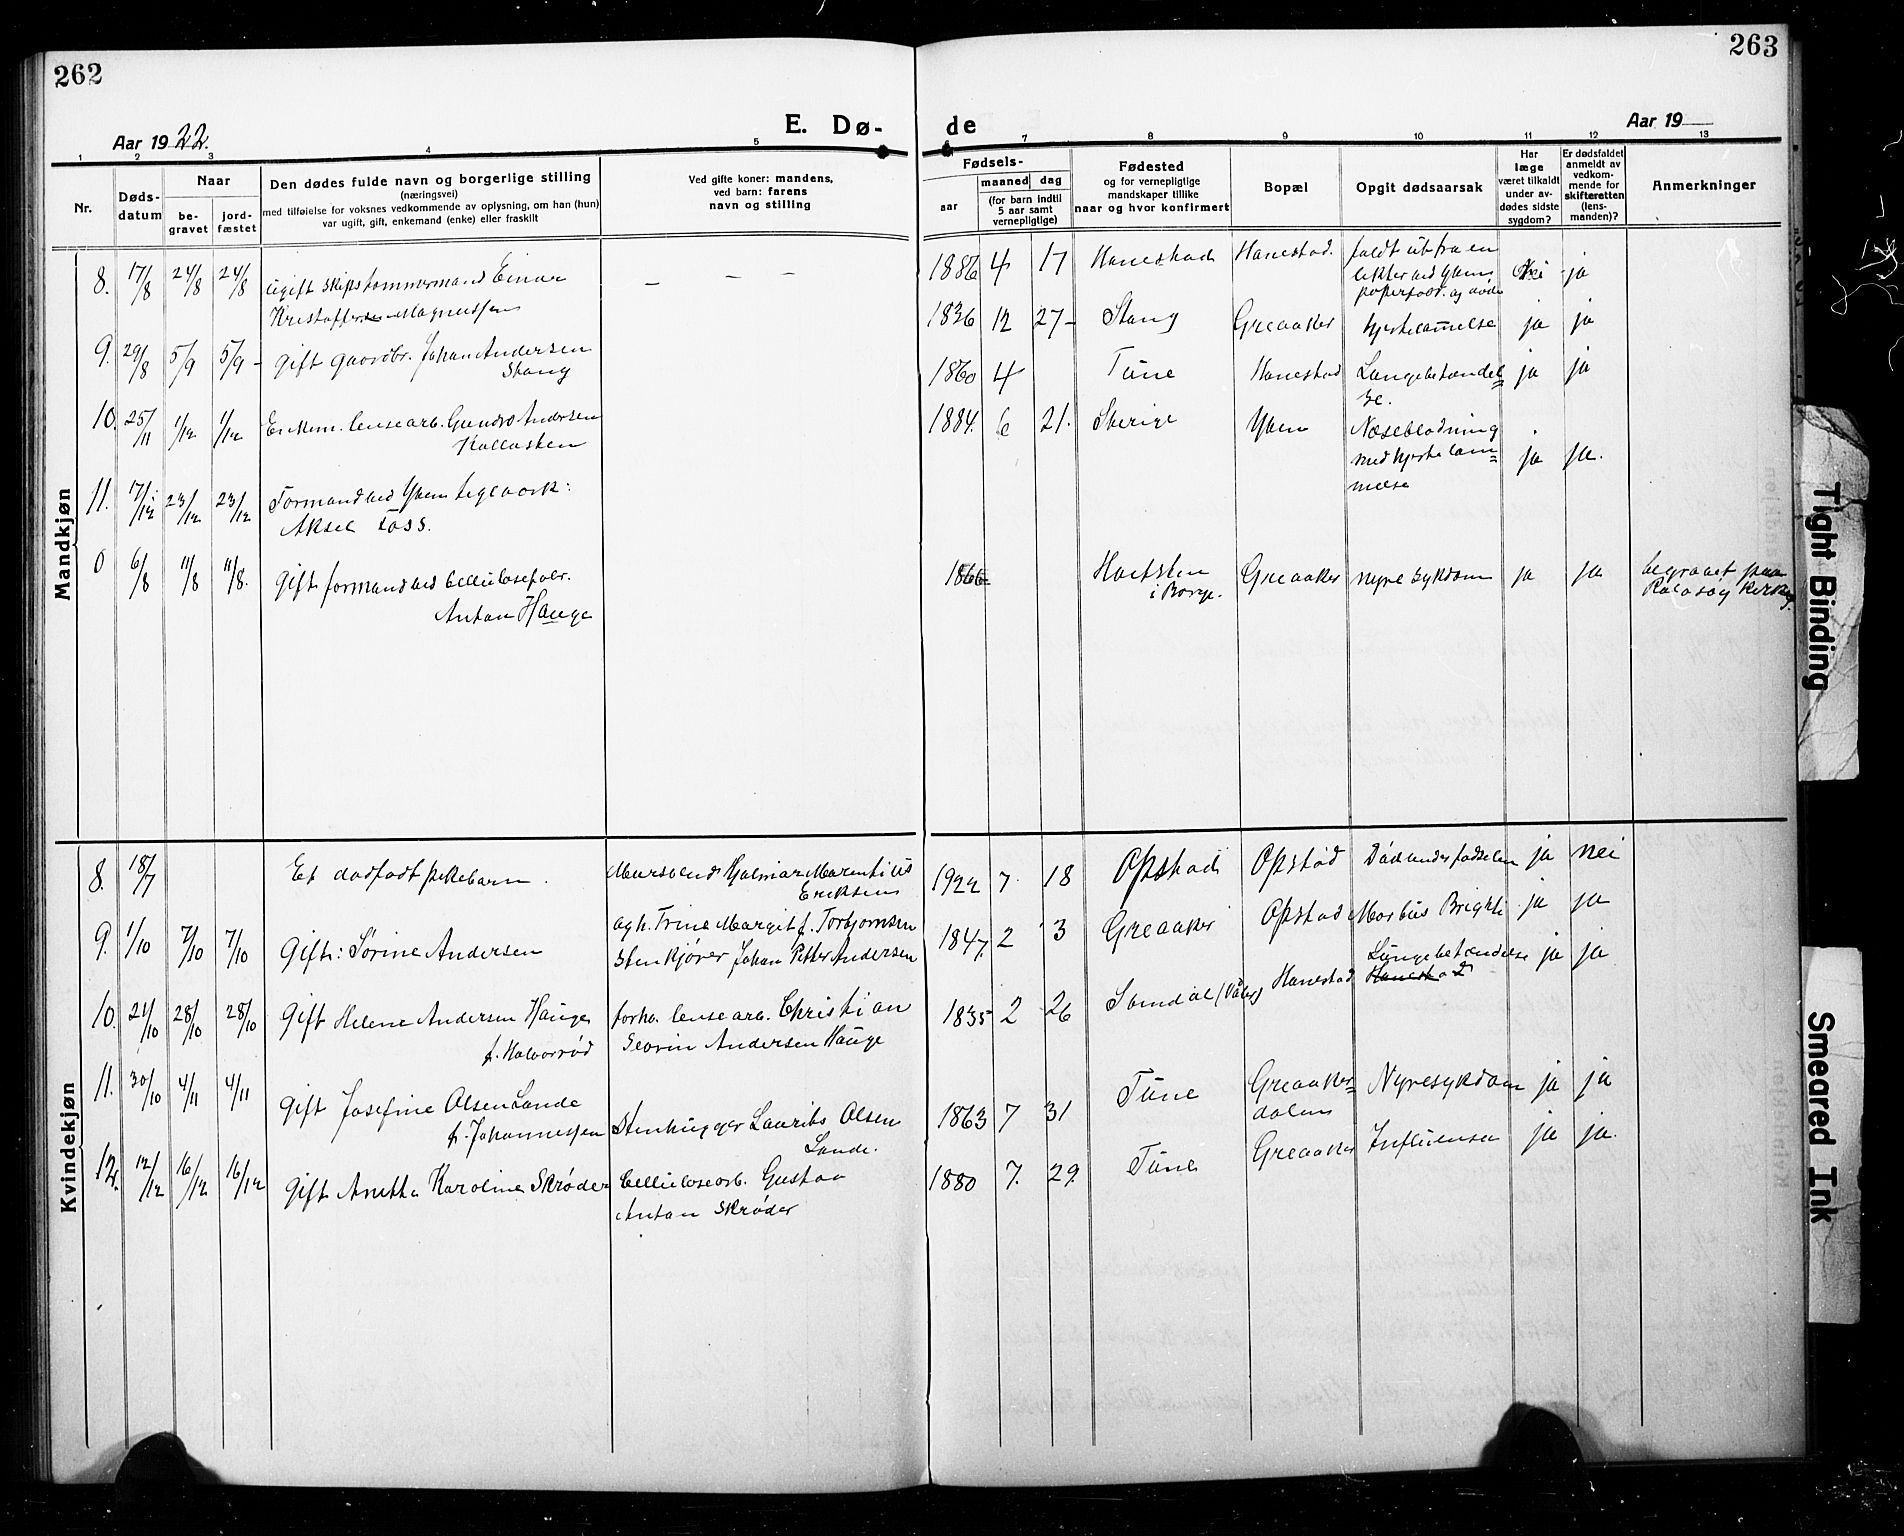 262
263
Aar 1922.
E. Dø-
de
Aar 19
1 2 3 4 5 6 7 8 9 10 11 12 13
Nr.
Døds-
datum
Naar
be-
gravet
jord-
fæstet
Den dødes fulde navn og borgerlige stilling
(næringsvei)
med tilføielse for voksnes vedkommende av oplysning, om han (hun)
var ugift, gift, enkemand (enke) eller fraskilt
Ved gifte koner: mandens,
ved barn: farens
navn og stilling
Fødsels-
aar
maaned
dag
(for barn indtil
5 aar samt
vernepligtige)
Fødested
og for vernepligtige
mandskaper tillike
naar og hvor konfirmert
Bopæl
Opgit dødsaarsak
Har
læge
været tilkaldt
under av-
dødes sidste
sygdom?
Er dødsfaldet
anmeldt av
vedkom-
mende for
skifteretten
(lens-
manden)?
Anmerkninger
Mandkjøn
8. 17/8 24/8 24/8 ugift skipstømmermand Einar
Kristoffersen Magnussen
— — —
1886 4 17 Hanestad Hanestad. faldt ut fra en
lekter ved Yven
papirfabr. og døde
nei ja
9. 29/8 5/9 5/9 gift gaardbr. Johan Andersen
Stang
1836 12 27 Stang Greaaker hjertelammelse ja ja
10. 25/11 1/12 1/12 Enkem. lensearb. Gundro Andersen
Kallasten
1860 4 Tune Hanestad Lungebetændel=
se.
ja ja
11. 17/12 23/12 23/12 Formand ved Yven teglverk:
Aksel Foss.
1884. 6 21. Sverige Yven Næseblødning
med hjertelam=
melse
ja ja.
0 6/8 11/8 11/8. Gift formand ved cellulosefabr.
Anton Hauge
1866 Hafsten
i Borge.
Greaaker nyresykdom ja ja begravet paa
Rolvsøy kirkeg.
Kvindekjøn
8. 18/7 Et dødfødt pikebarn.
Mursvend Hjalmar Marentius
Eriksen
agh. Trine Margit f. Torbjørnsen
1922 7 18 Opstad Opstad Død under fødselen ja nei
9. 1/10 7/10 7/10 Gift: Sørine Andersen
Stenkjører Johan Petter Andersen
1847. 2 3 Greaaker Opstad Morbus Brighti ja ja
10. 21/10 28/10 28/10 Gift Helene Andersen Hauge
f. Halvorsrød
forhv. lensearb. Christian
Severin Andersen Hauge
1835 2 26 Hanestad Lungebetændelse
Hanestad
ja ja
11. 30/10 4/11 4/11 Gift Josefine Olsen Lande
f. Johannessen
Stenhugger Laurits Olsen
Lande.
1863 7 31 Tune Greaaker=
dalen
Nyresykdom ja ja
12. 12/12 16/12 16/12 Gift Anetta Karoline Skrøder
Cellulosearb. Gustav
Anton Skrøder
1880 7. 29. Tune Greaaker Influensa ja ja.
Tight Binding
Smeared Ink